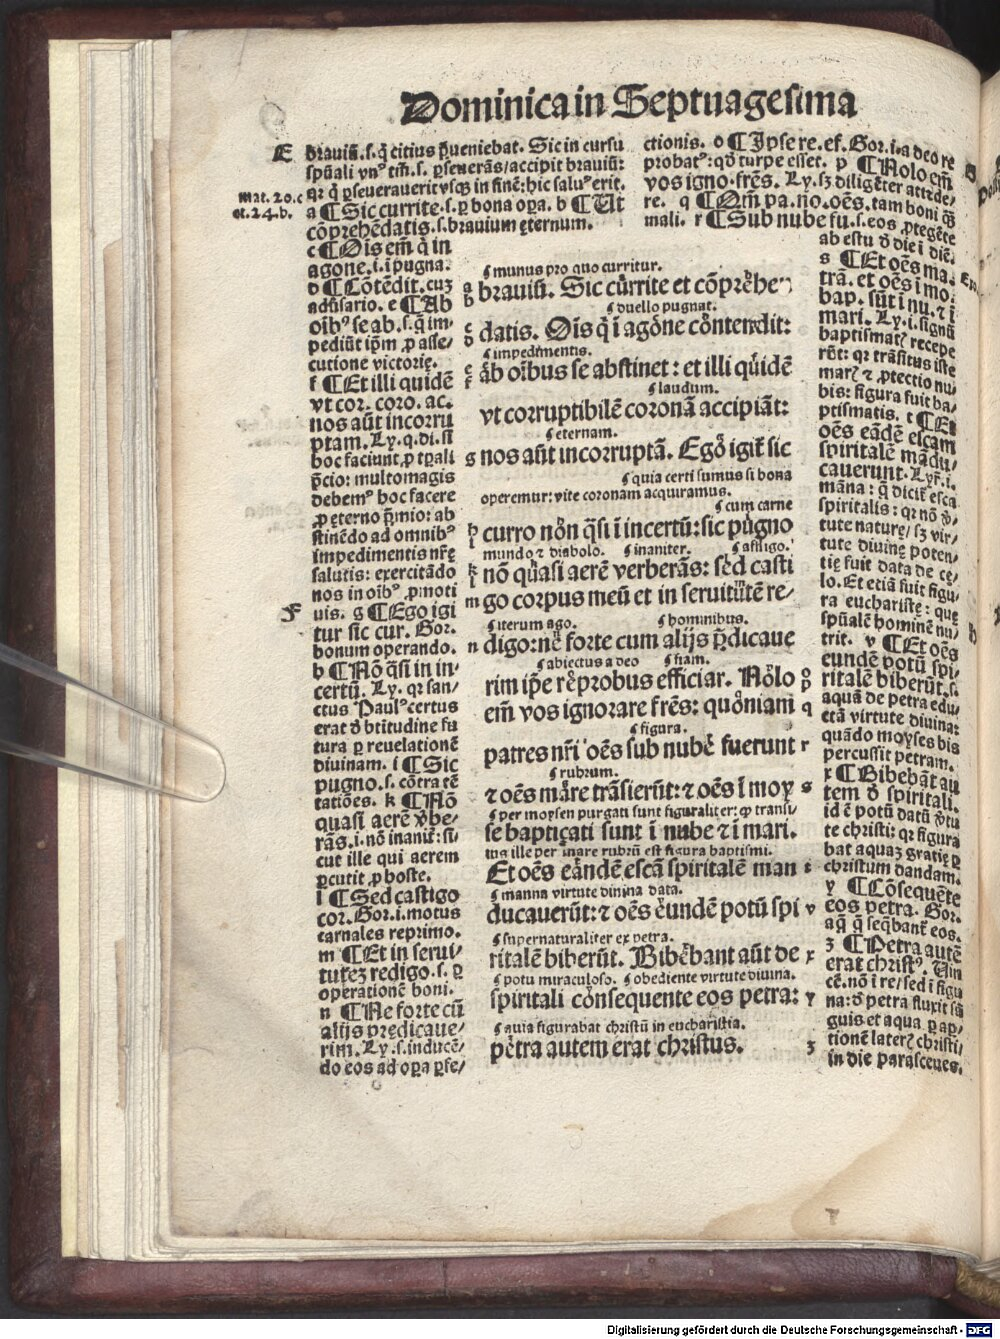 Dominica in Septuagesima
E
brauiū. s. q̄ citius ꝑueniebat. Sic in cursu
spūali vnꝰ tm̄. s. ꝑseuerās/accipit brauiū:
qr q̄ ꝑseuerauerit vsqꝫ in finē: hic saluꝰ erit.
Mat. 20. c
et. 24. b.
a ¶ Sic currite. s. ꝑ bona oꝑa. b ¶ Ut
cōprehēdatis. s. brauium ęternum.
c ¶ Ois em̄ q̄ in
agone. i. ī pugna.
d ¶ Cōtēdit. cuꝫ
aduersario. e ¶ Ab
oībꝰ se ab. s. q̄ im-
pediūt ip̄m ꝓ asse-
cutione victorię.
f ¶ Et illi quidē
vt cor. coro. ac.
nos aūt incorru
ptam. Ly. q. di. si
hoc faciunt ꝓ tꝑali
p̄cio: multomagis
debemꝰ hoc facere
ꝓ ęterno p̄mio: ab
stinēdo ad omnibꝰ
impedimentis nr̄ę
salutis: exercitādo
nos in oībꝰ ꝓmoti
F
uis. g ¶ Ego igi
tur sic cur. Gor.
bonum operando.
h ¶ Nō q̄si in in-
certū. Ly. qr san/
ctus Paulꝰ certus
erat d̄ btitudine fu
tura ꝑ reuelationē
diuinam. i ¶ Sic
pugno. s. cōtra tē
tatiōes. k ¶ Nō
quasi aerē v̄be-
rās. i. nō inanit̄: si-
cut ille qui aerem
ꝑcutit ꝓ hoste.
l ¶ Sed castigo
cor. Gor. i. motus
carnales reprimo.
m ¶ Et in serui-
tuteꝫ redigo. s. ꝑ
operationē boni.
n ¶ Ne forte cū
alijs prędicaue/
rim. Ly. s. inducē/
do eos ad oꝑa ꝑfe/
munus pro quo curritur.
a brauiū. Sic cūrrite et cōprēhen
b
duello pugnat.
c datis. Ois q̄ i agōne cōntendit:
d
impedimentis.
e āb oībus se abstinet: et illi quidē
f
laudum.
vt corruptibilē coronā accipiāt:
eternam.
g nos aūt incorruptā. Egō igit̄ sic
quia certi sumus si bona
operemur: vite coronam acquiramus.
cum carne
h curro nōn q̄si ī incertū: sic pugno
i
mundo ⁊ diabolo. inaniter. affligo.
k nō quasi aerē verberās: sed casti
l
m go corpus meū et in seruitūtē re/
iterum ago. hominibus.
n digo: nē forte cum alijs p̄dicaue
abiectus a deo fiam.
rim ip̄e rēprobus efficiar. Nōlo o
p
em̄ vos ignorare fr̄es: quōniam q
figura.
patres nr̄i oēs sub nubē fuerunt r
rubrum.
⁊ oēs māre trāsierūt: ⁊ oēs ī moy s
per moysen purgati sunt figuraliter: qꝫ transi/
se baptiçati sunt ī nube ⁊ ī mari.
tus ille per mare rubrū est figura baptismi.
Et oēs eāndē escā spiritalē man t
manna virtute diuina data.
ducauerūt: ⁊ oēs ēundē potū spi v
supernaturaliter ex petra.
ritalē biberūt. Bibēbant aūt de x
potu miraculoso. obediente virtute diuina.
spiritali cōnsequente eos petra: y
quia figurabat christū in eucharistia.
pētra autem erat christus. z
ctionis. o ¶ Ipse re. ef. Gor. i. a deo re
probatꝰ: qd̄ turpe esset. p ¶ Nolo em̄
vos igno. fr̄es. Ly. sꝫ diligēter attēde/
re. q ¶ Qm̄ pa. no. oēs. tam boni qꝫ
mali. r ¶ Sub nube fu. s. eos ꝓtegēte
ab estu d̄ die ī diē.
s ¶ Et oēs ma.
trā. et oēs i mo.
bap. sūt i nu. ⁊ ī
mari. Ly. i. signū
baptismatꝭ recepe
rūt: qr trāsitus iste
marꝭ ⁊ ꝓtectio nu/
bis: figura fuit ba/
ptismatis. t ¶ Et
oēs eādē escam
spiritalē mādu/
cauerunt. Lyr̄. i.
māna: q̄ dicit̄ esca
spiritalis: qr nō v̄/
tute naturę/ sꝫ vir/
tute diuinę poten/
tię fuit data de cę/
lo. Et etiā fuit figu/
ra eucharistę: quę
spūalē hominē nu/
trit. v ¶ Et oēs
eundē potū spi/
ritalē biberūt. s.
aquā de petra edu/
ctā virtute diuina:
quādo moyses bis
percussit petram.
x ¶ Bibebāt au
tem d̄ spiritali.
id ē potū datū v̄tu
te christi: qr figura
bat aquaꝫ gratię ꝑ
christum dandam.
y ¶ Cōsequēte
eos petra. Gor.
aq̄ q̄ seq̄bant̄ eos.
z ¶ Petra autē
erat christꝰ. Vin
cē. nō ī re/ sed ī figu
na: d̄ petra fluxit sā
guis et aqua ꝑ aꝑ/
tionē laterꝭ christi/
in die parasceues.
Digitalisierung gefördert durch die Deutsche Forschungsgemeinschaft - DFG